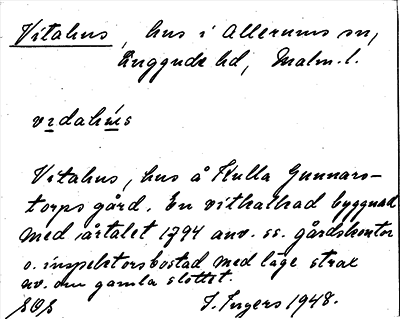 Vitahus, hus i Allerums sn,
Luggude hd, Malm. l.
vidahus
Vitahus, hus å Kulla Gunnars-
torps gård. En vitkalkad byggnad
med årtalet 1794 anv. ss. gårdskontor
o. inspektorsbostad med läge strax
nv. om gamla slottet.
I. Ingers 1948.